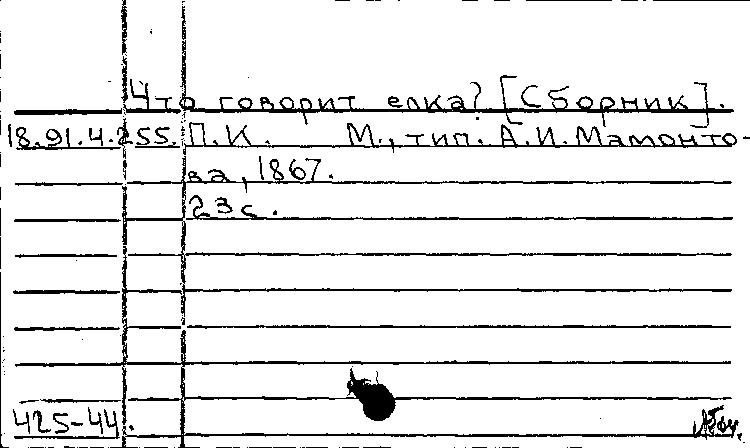 Что говорит елка? [Сборник].
18.91.4.255. П.К. М., тип. А.И.Мамонто-
ва, 1867.
23 с.
425-44.